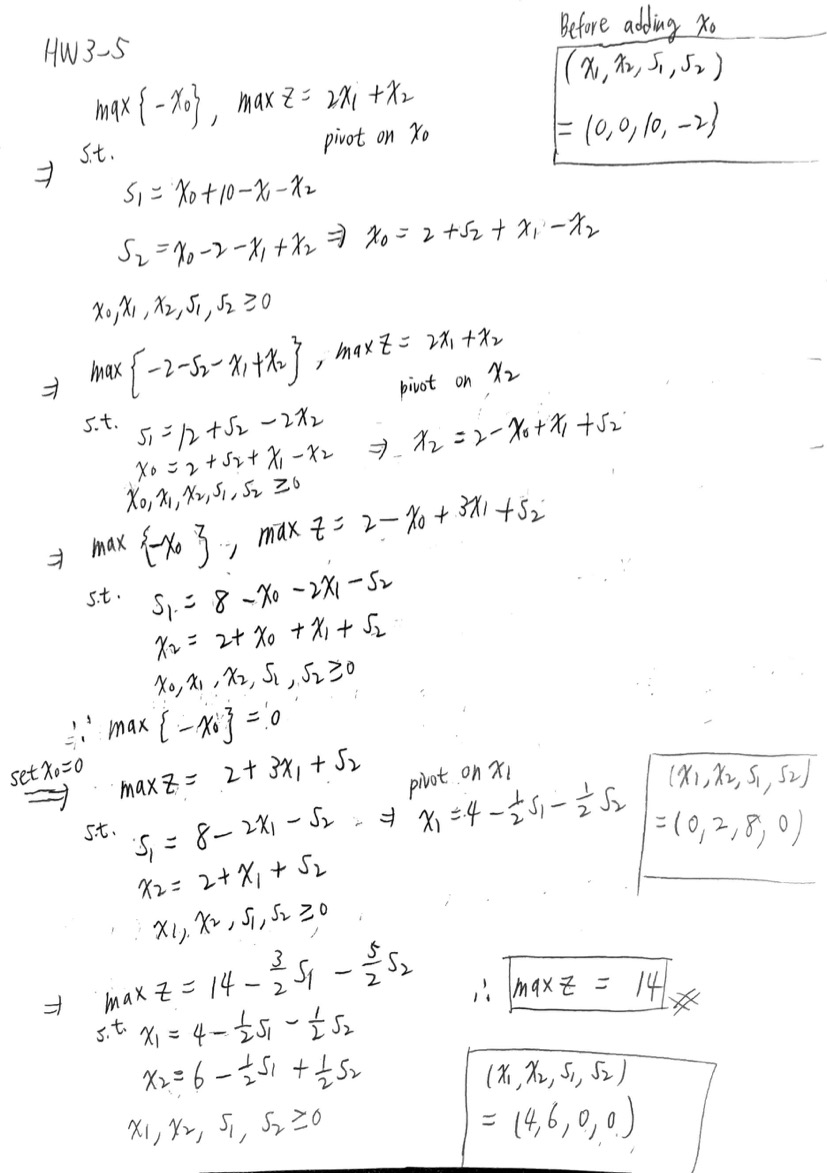 HW3-5
Before adding x₀
(x₁, x₂, s₁, s₂)
= (0, 0, 10, -2)
max{-x₀}, max z = 2x₁ + x₂
pivot on x₀
⇒ s.t.
s₁ = x₀ + 10 - x₁ - x₂
s₂ = x₀ - 2 - x₁ + x₂ ⇒ x₀ = 2 + s₂ + x₁ - x₂
x₀, x₁, x₂, s₁, s₂ ≥ 0
⇒ max{-2 - s₂ - x₁ + x₂}, max z = 2x₁ + x₂
pivot on x₂
s.t. s₁ = 12 + s₂ - 2x₂
x₀ = 2 + s₂ + x₁ - x₂ ⇒ x₂ = 2 - x₀ + x₁ + s₂
x₀, x₁, x₂, s₁, s₂ ≥ 0
⇒ max{-x₀}, max z = 2 - x₀ + 3x₁ + s₂
s.t. s₁ = 8 - x₀ - 2x₁ - s₂
x₂ = 2 + x₀ + x₁ + s₂
x₀, x₁, x₂, s₁, s₂ ≥ 0
∵ max{-x₀} = 0
set x₀=0 ⇒ max z = 2 + 3x₁ + s₂
pivot on x₁
s.t. s₁ = 8 - 2x₁ - s₂ ⇒ x₁ = 4 - ½s₁ - ½s₂
x₂ = 2 + x₁ + s₂
x₁, x₂, s₁, s₂ ≥ 0
(x₁, x₂, s₁, s₂)
= (0, 2, 8, 0)
⇒ max z = 14 - 3/2 s₁ - 5/2 s₂
s.t. x₁ = 4 - ½s₁ - ½s₂
x₂ = 6 - ½s₁ + ½s₂
x₁, x₂, s₁, s₂ ≥ 0
∴ max z = 14
(x₁, x₂, s₁, s₂)
= (4, 6, 0, 0)